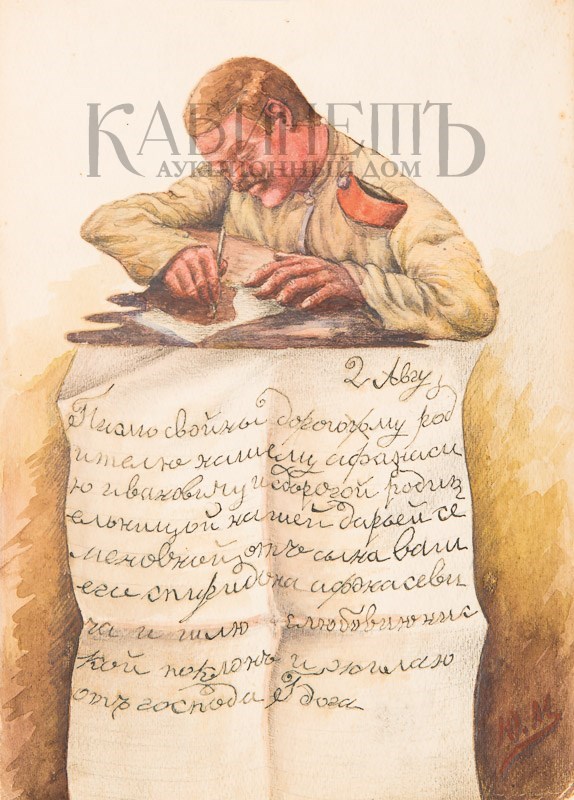 КАБИНЕТЪ
АУКЦИОННЫЙ ДОМ
2 Авгу
Писмо свойны дорогому род
ителю нашему афанаси
ю ивановичу и дорогой родит
ельницой нашей дарьей се
меновной отъ сына ваш
его спиридона афанасеви
ча и шлю с любовию нис
кой поклонъ и желаю
отъ господа бога